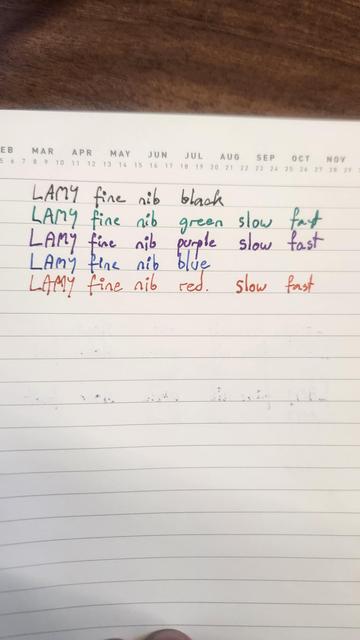 EB MAR APR MAY JUN JUL AUG SEP OCT NOV
5 6 7 8 9 10 11 12 13 14 15 16 17 18 19 20 21 22 23 24 25 26 27 28 29
LAMY fine nib black
LAMY fine nib green slow fast
LAMY fine nib purple slow fast
LAMY fine nib blue
LAMY fine nib red. slow fast